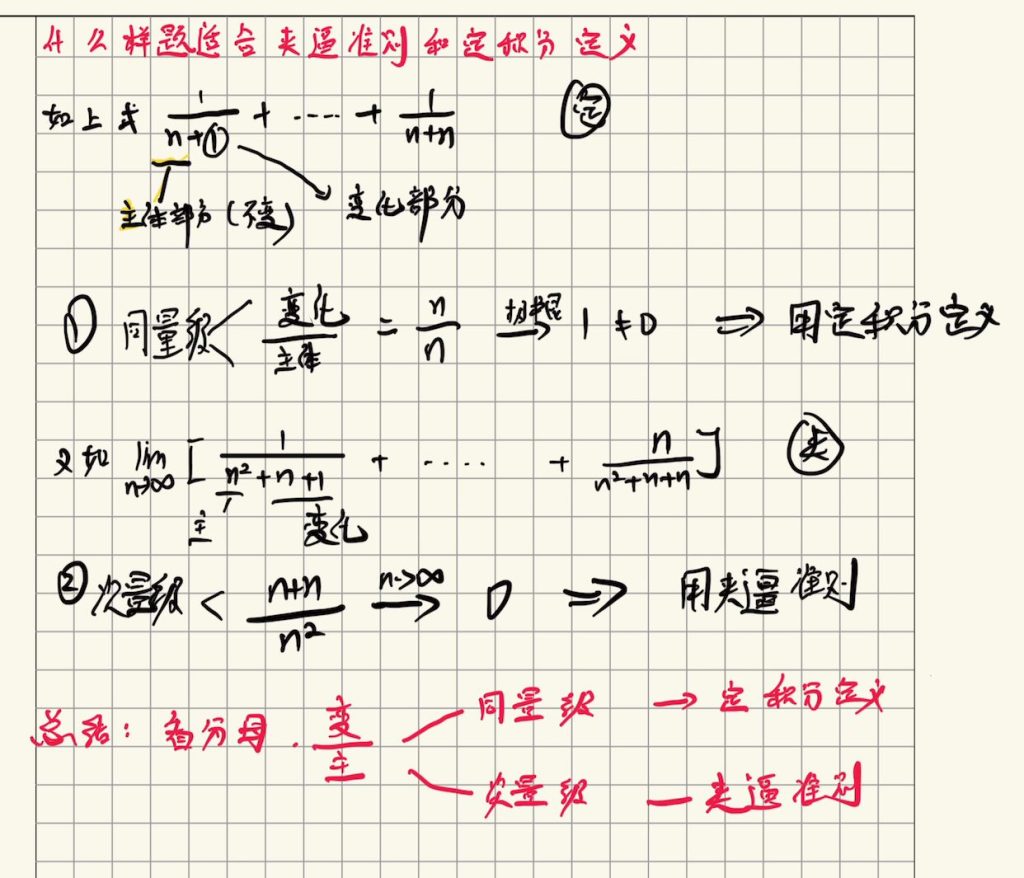 什么样题适合夹逼准则和定积分定义
如上式 1/(n+①) + ····· + 1/(n+n) 定
主体部分(不变) 变化部分
① 同量级< 变化/主体 = n/n → 1 ≠ 0 ⇒ 用定积分定义
又如 lim n→∞ [ 1/(n²+n+1) + ····· + n/(n²+n+n) ] 夹
主 变化
② 次量级 < (n+n)/n² n→∞ → 0 ⇒ 用夹逼准则
总结: 看分母. 变/主 同量级 → 定积分定义
次量级 — 夹逼准则